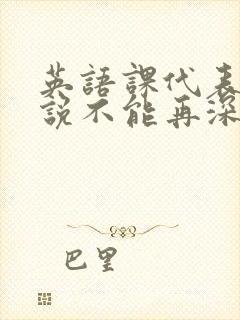 英語課代表
說不能再深
巴里